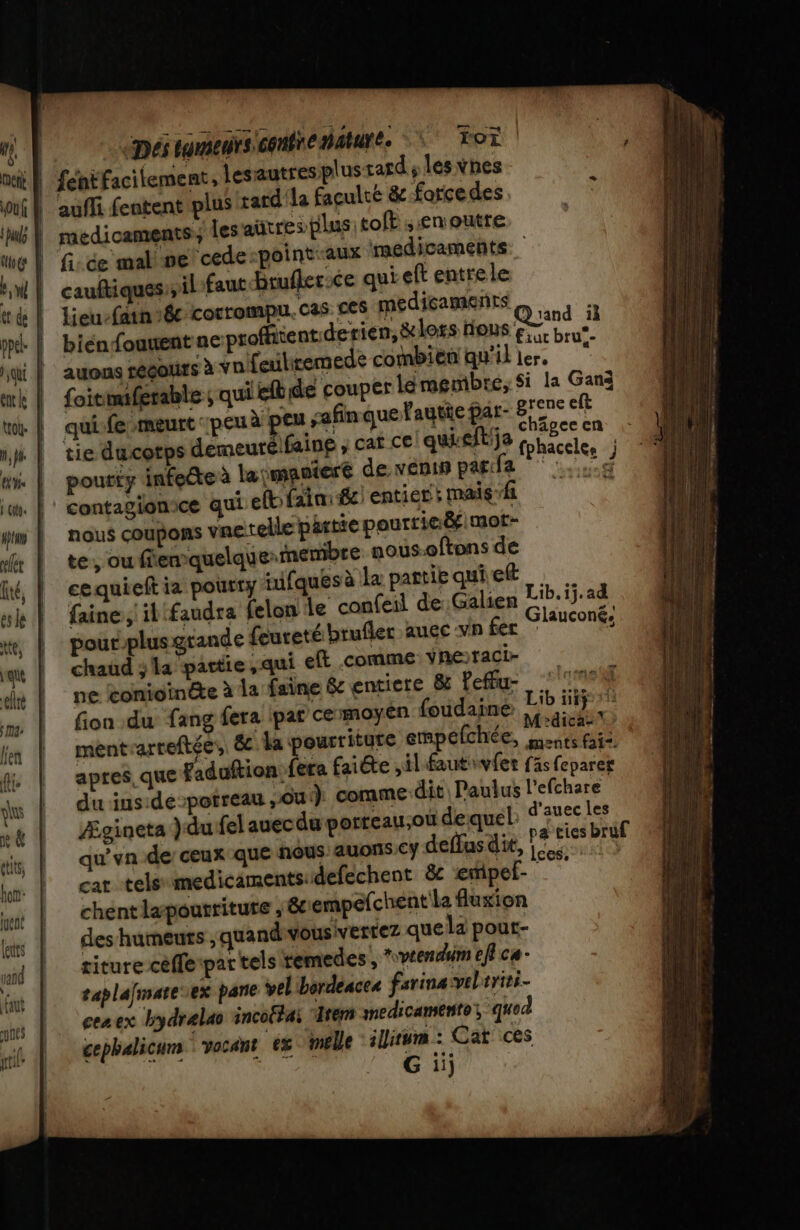 Des tumeurs contre nature. 101
ſent facilement, les autres plus tard ; les vnes
auſſi ſentent plus tard la faculté & force des
medicaments, les autres plus toſt ; en outre
ſi ce mal ne cede point aux medicaments
cauſtiques, il faut bruſler ce qui eſt entre le
lieu ſain & corrompu, car ces medicaments
bien ſouuent ne proffitent de rien, & lors nous
auons recours à vn ſeul remede combien qu'il
ſoit miſerable, qui eſt de couper le membre,
qui ſe meurt peu à peu, afin que l'autre par-
tie du corps demeure ſaine, car ce qui eſt ja
pourry infecte à la maniere de venin par ſa
contagion ce qui eſt ſain & entier ; mais ſi
nous coupons vne telle partie pourrie & mor-
te, ou ſi en quelque membre nous oſtons de
ce qui eſt ia pourry iuſques à la partie qui eſt
ſaine, il faudra ſelon le conſeil de Galien
pour plus grande ſeureté bruſler auec vn fer
chaud ; la partie, qui eſt comme vne raci-
ne conioincte à la ſaine & entiere & l'effu-
ſion du ſang ſera par ce moyen ſoudaine-
ment arreſtée, & la pourriture empeſchée,
apres que l'aduſtion ſera faicte, il faut vſer
du ius de porreau, ou ( comme dit Paulus
Ægineta ) du ſel auec du porreau, ou de quel-
qu'vn de ceux que nous auons cy deſſus dit,
car tels medicaments deſechent & empeſ-
chent la pourriture, & empeſchent la fluxion
des humeurs, quand vous verrez que la pour-
riture ceſſe par tels remedes, * vtendum eſt ca-
taplaſmate ex pane vel hordeacea farina vel triti-
cea ex hydrelæo incocta; Item medicamento, quod
cephalicum vocant ex melle illitum : Car ces
G iij
Quand il
faut bru-
ler.
Si la Gang
grene eſt
chãgee en
ſphacele,
Lib. ij. ad
Glauconē.
Lib iiij
Medica-
ments fai-
ſãs ſeparer
l'eſchare
d'auec les
parties bruſ
lees.